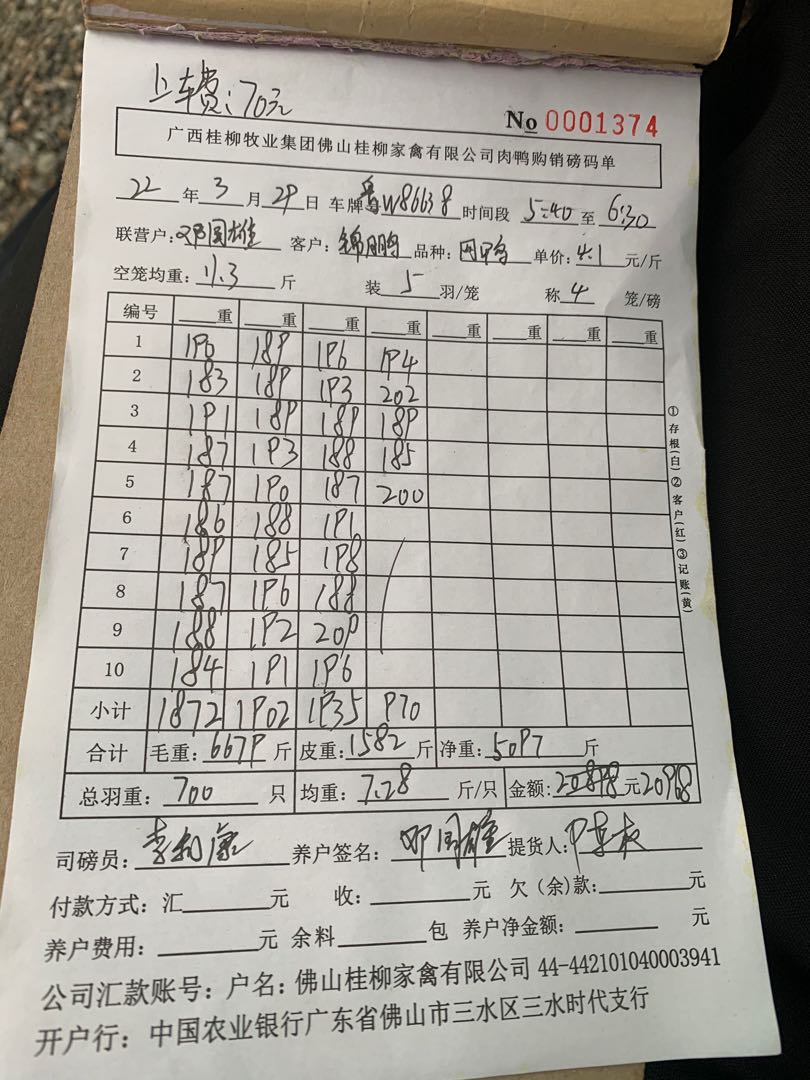 上车费：70元
No 0001374
广西桂柳牧业集团佛山桂柳家禽有限公司肉鸭购销磅码单
22 年 3 月 29 日 车牌号 粤W86638 时间段 5:40 至 6:30
联营户：邓国雄 客户：锦鹏 品种： 单价：4.1 元/斤
空笼均重：11.3 斤 装 5 羽/笼 称 4 笼/磅
编号 重 重 重 重 重 重 重 重
1 190 189 196 194
2 183 189 193 202
3 191 189 189 189
4 187 193 188 185
5 187 190 187 200
6 186 188 191
7 189 185 198
8 187 196 188
9 188 192 209
10 184 191 196
小计 1872 1902 1935 970
合计 毛重：6679 斤 皮重：1582 斤 净重：5097 斤
总羽重：700 只 均重：7.28 斤/只 金额： 元 20968
司磅员： 养户签名：邓国雄 提货人：
付款方式：汇 元 收： 元 欠（余）款： 元
养户费用： 元 余料 包 养户净金额： 元
公司汇款账号：户名：佛山桂柳家禽有限公司 44-442101040003941
开户行：中国农业银行广东省佛山市三水区三水时代支行
①存根(白)②客户(红)③记账(黄)